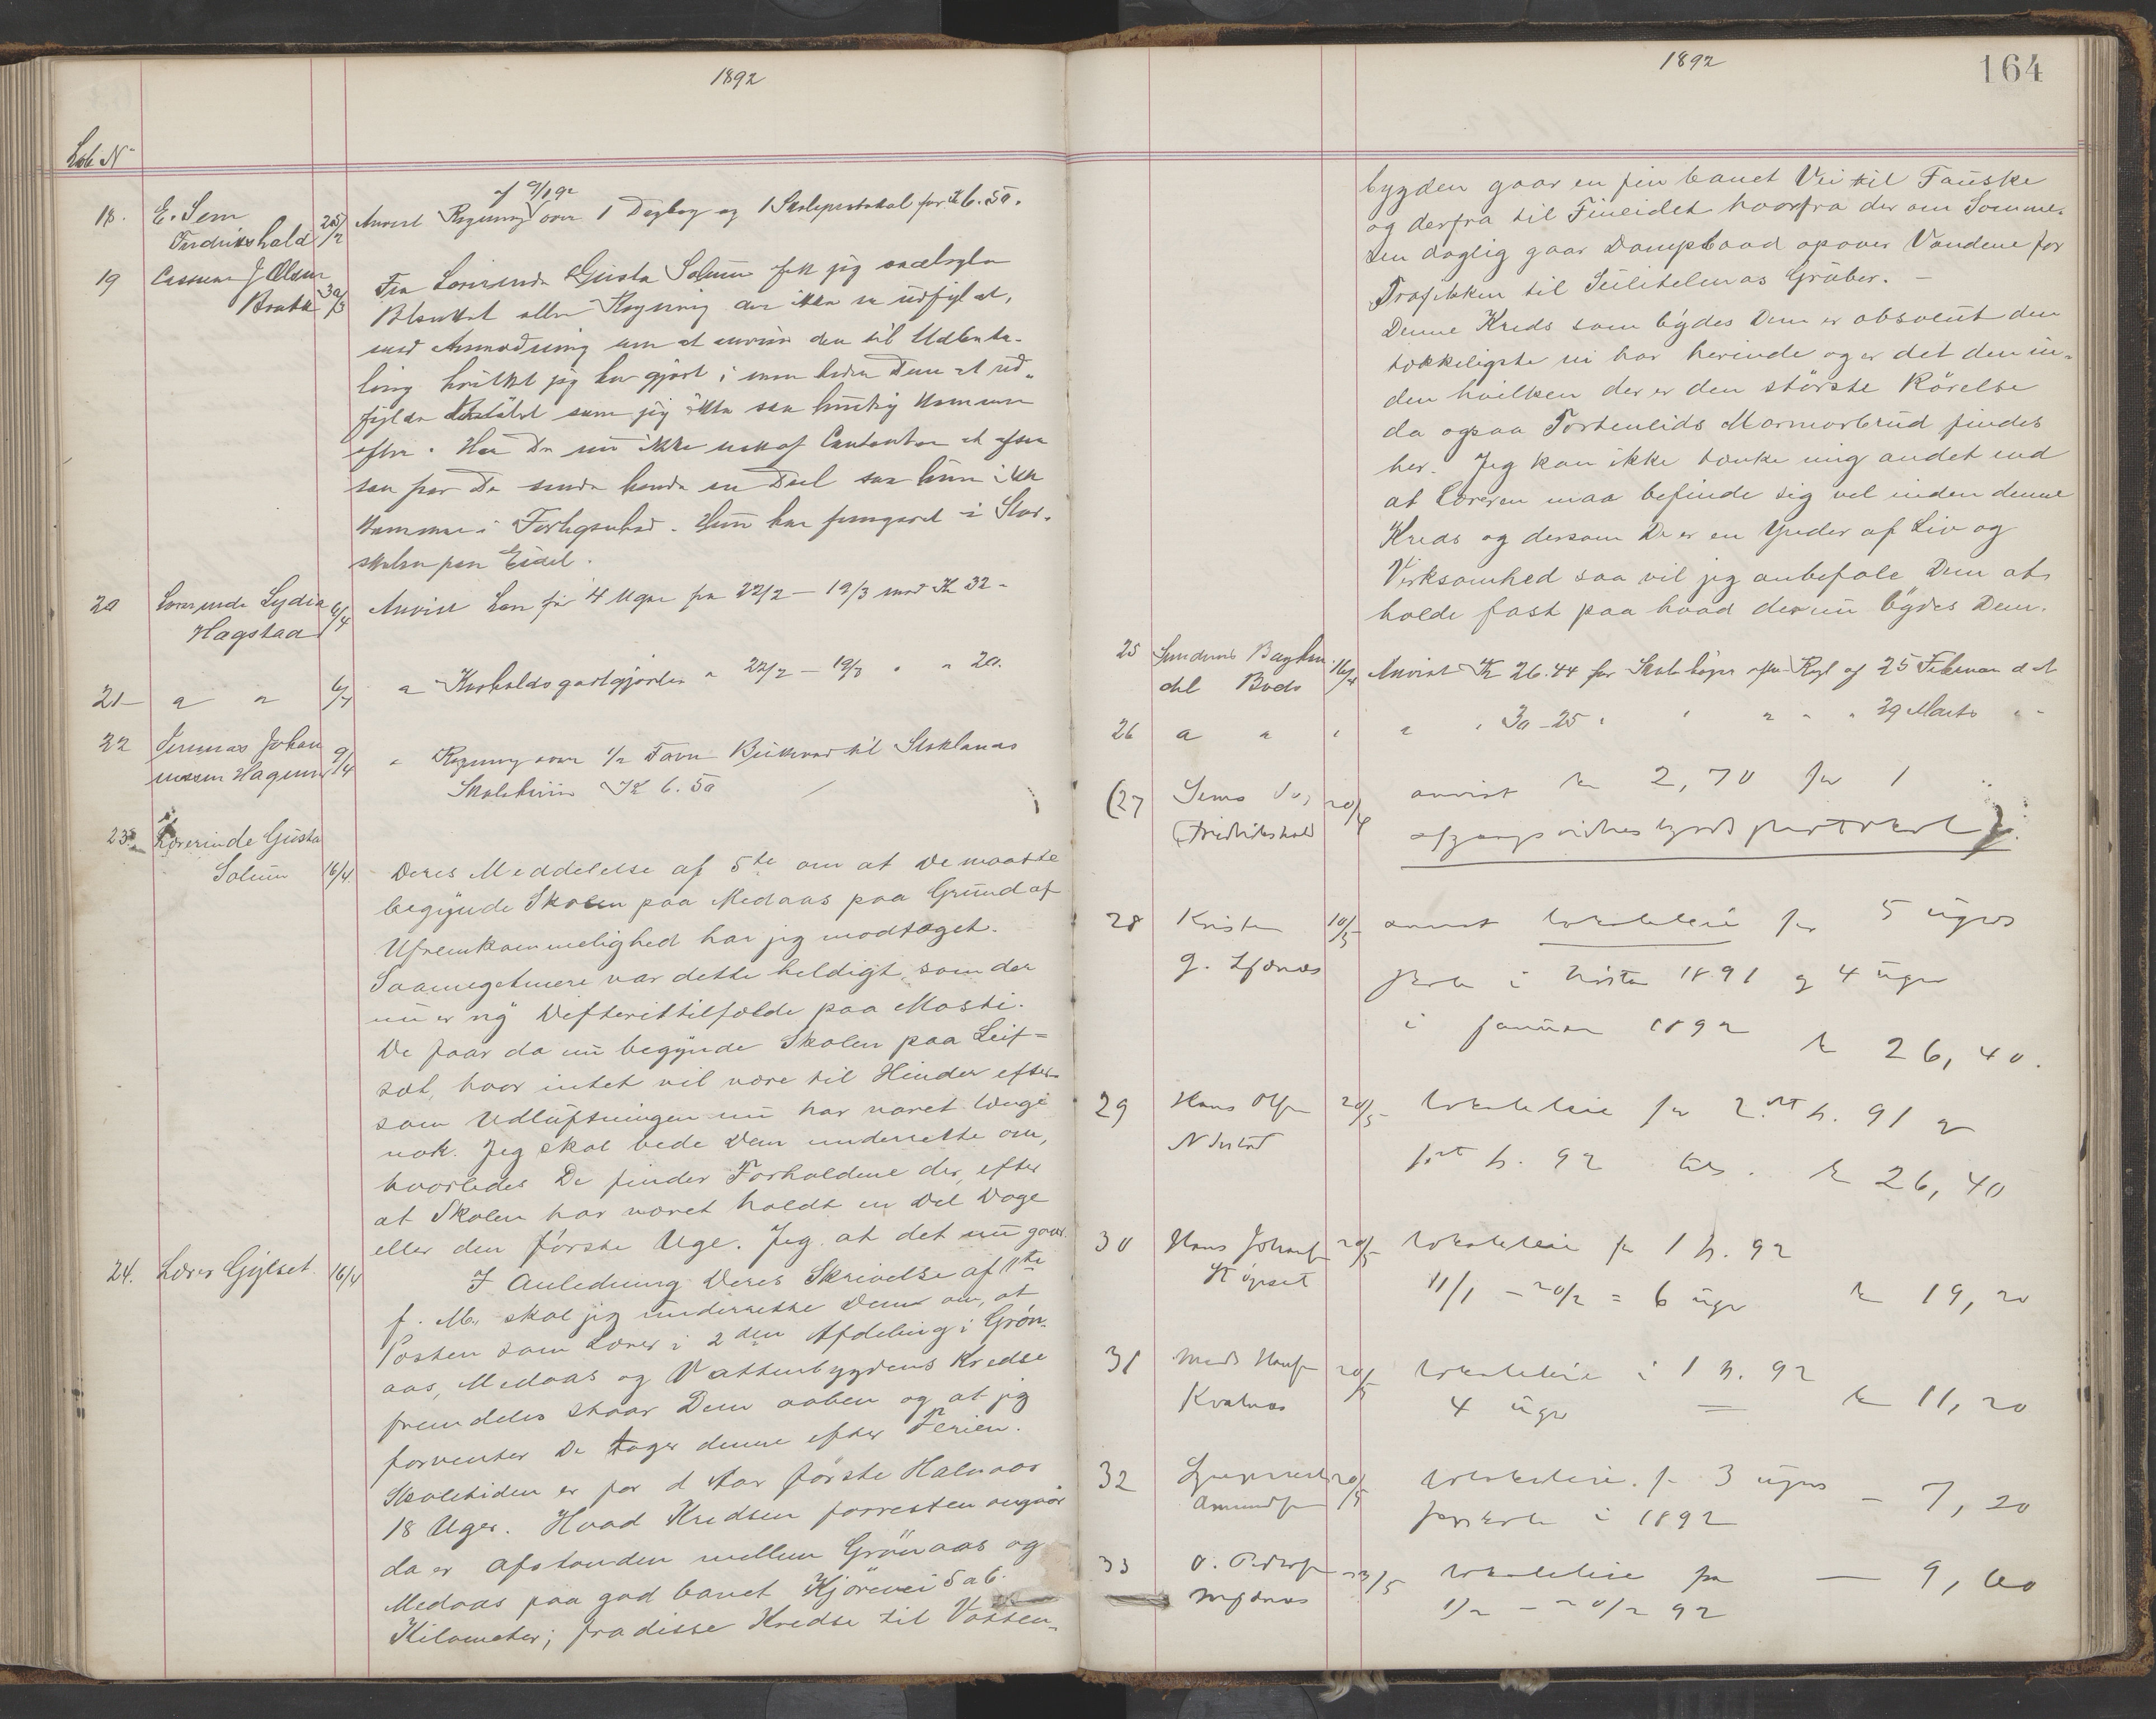 1892
Løb N
18. E. Sem 25/2 Anvist Regning af 9/1 92 over 1 Dagbog og 1 Skoleprotokol for K 6.50.
Fredrikshald
19 Casserer J Olsen 30/3 Fra Lærerinde Gusta Solum fik jig
Brækk Blanket eller Regning der ikke er udfyldt,
med Anmodning om at anvise den til Udbeta-
ling hvilket jeg har gjort i men beder Dem at ud-
fylde som jeg ikke saa
efter. Har De nu ikke nok af Contanter at
saa faar De sende hende en Deel saa hun ikke
kommer i Forlegenhed. Hun har fungeret i Stor-
skolen paa Eidet.
20 Lærerinde Lydia 6/4 Anvist Løn for 4 Uger fra 22/2 — 19/3 med K 32 -
Hagstad
21 " " 6/4 " Kostholdsgodtgjørelse " 22/2 — 19/3 " " 20.
22 Johan 9/4 " Regning over 1/2 Favn Birkeved til Stoklands
nessen Hagenes Skolehuus K 6.50
23. Lærerinde Gusta
Solum 16/4 Deres Meddelelse af 5te om at De maatte
begynde Skolen paa Medaas paa Grund af
Ufremkommelighed har jeg modtaget.
Saameget mere var dette heldigt, som der
nu er ny Difterittilfælde paa Mosti.
De faar da nu begynde Skolen paa Leif-
set, hvor intet vil være til Hinder efter-
som Udluftningen nu har været længe
nok. Jeg skal bede Dem underrette om,
hvorledes De finder Forholdene der, efter
at Skolen har været holdt en Del Dage
eller den første Uge. Jeg at det nu gaar.
24. Lærer Gylset 16/4 I Anledning Deres Skrivelse af 11te
f. M. skal jeg underrette Dem om, at
Posten som Lærer i 2den Afdeling i Grøn-
aas, Medaas og Vattenbygdens Kredse
fremdeles staar Dem aaben og at jeg
forventer De tager denne efter Ferien.
Skoletiden er for d Aar første Halvaar
18 Uger. Hvad Kredsen forresten angaar
da er Afstanden mellem Grønaas og
Medaas paa god banet Kjørevei 5 a 6
Kilometer; fra disse Kredse til Vatten-
1892
164
bygden gaar en fin banet Vei til Fauske
og derfra til Fineidet hvorfra der om Somme-
ren daglig gaar Dampbaad opover Vandene for
Trafikken til Sulitelmas Gruber. —
Denne Kreds som bydes Dem er absolut den
hyggeligste vi har herinde og er det den in-
den hvilken der er den største Rørelse
da ogsaa Fortenlids Marmorbrud findes
her. Jeg kan ikke tænke mig andet end
at Læreren maa befinde sig vel inden denne
Kreds og dersom De er en Ynder af Liv og
Virksomhed saa vil jeg anbefale Dem at
holde fast paa hvad der nu bydes Dem.
25 16/4 Anvist K 26.44 for Skolebøger efter Regl af 25 Februar d A
Bodø
26 " " " " " 30-25 " " " " " 29 Marts " "
(27 Sems 20/4 anvist kr 2,70 for 1
(Fredrikshald afgangsvidnesbyrdsprotokol)
28 Kristen 10/5 anvist lokalleie for 5 ugers
G. skole i høsten 1891 og 4 uger
i januar 1892 kr 26,40.
29 Hans Olsen 20/5 lokalleie for 2. h. 91 og
1st h. 92 kr 26,40
30 Hans Johans 20/5 lokalleie for 1 h. 92
11/1 - 20/2 = 6 uger kr 19,20
31 Mads Hansen 20/5 lokalleie i 1 h. 92
Kvalnes 4 uger = kr 11,20
32 20/5 lokalleie for 3 ugers
Amundsen i 1892 - 7,20
33 O. Peders 23/5 lokalleie fra — 9,60
1/2 - 20/2 92